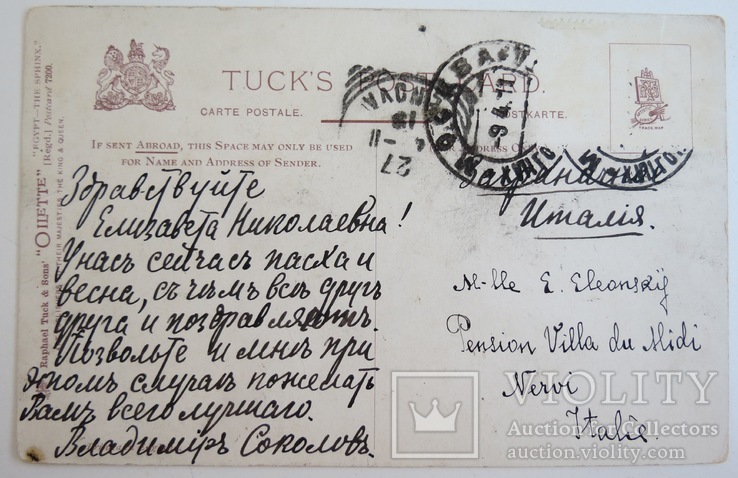 TUCK'S POST CARD.
CARTE POSTALE.
POSTKARTE.
IF SENT ABROAD, THIS SPACE MAY ONLY BE USED
FOR NAME AND ADDRESS OF SENDER.
TRADE MARK
Raphael Tuck & Sons' "OILETTE" [Regd.] Postcard 7200.
"EGYPT—THE SPHINX."
THEIR MAJESTIES THE KING & QUEEN.
МОСКВА
9.4.11
27
Здравствуйте
Елизавета Николаевна!
У насъ сейчасъ пасха и
весна, съ чѣмъ всѣ другъ
друга и поздравляютъ.
Позвольте и мнѣ при
этомъ случаѣ пожелать
Вамъ всего лучшаго.
Владимиръ Соколовъ.
Италія.
M-lle E. Eleonskij
Pension Villa du Midi
Nervi
Italie.
VIOLITY
Auction for Collectors
auction.violity.com